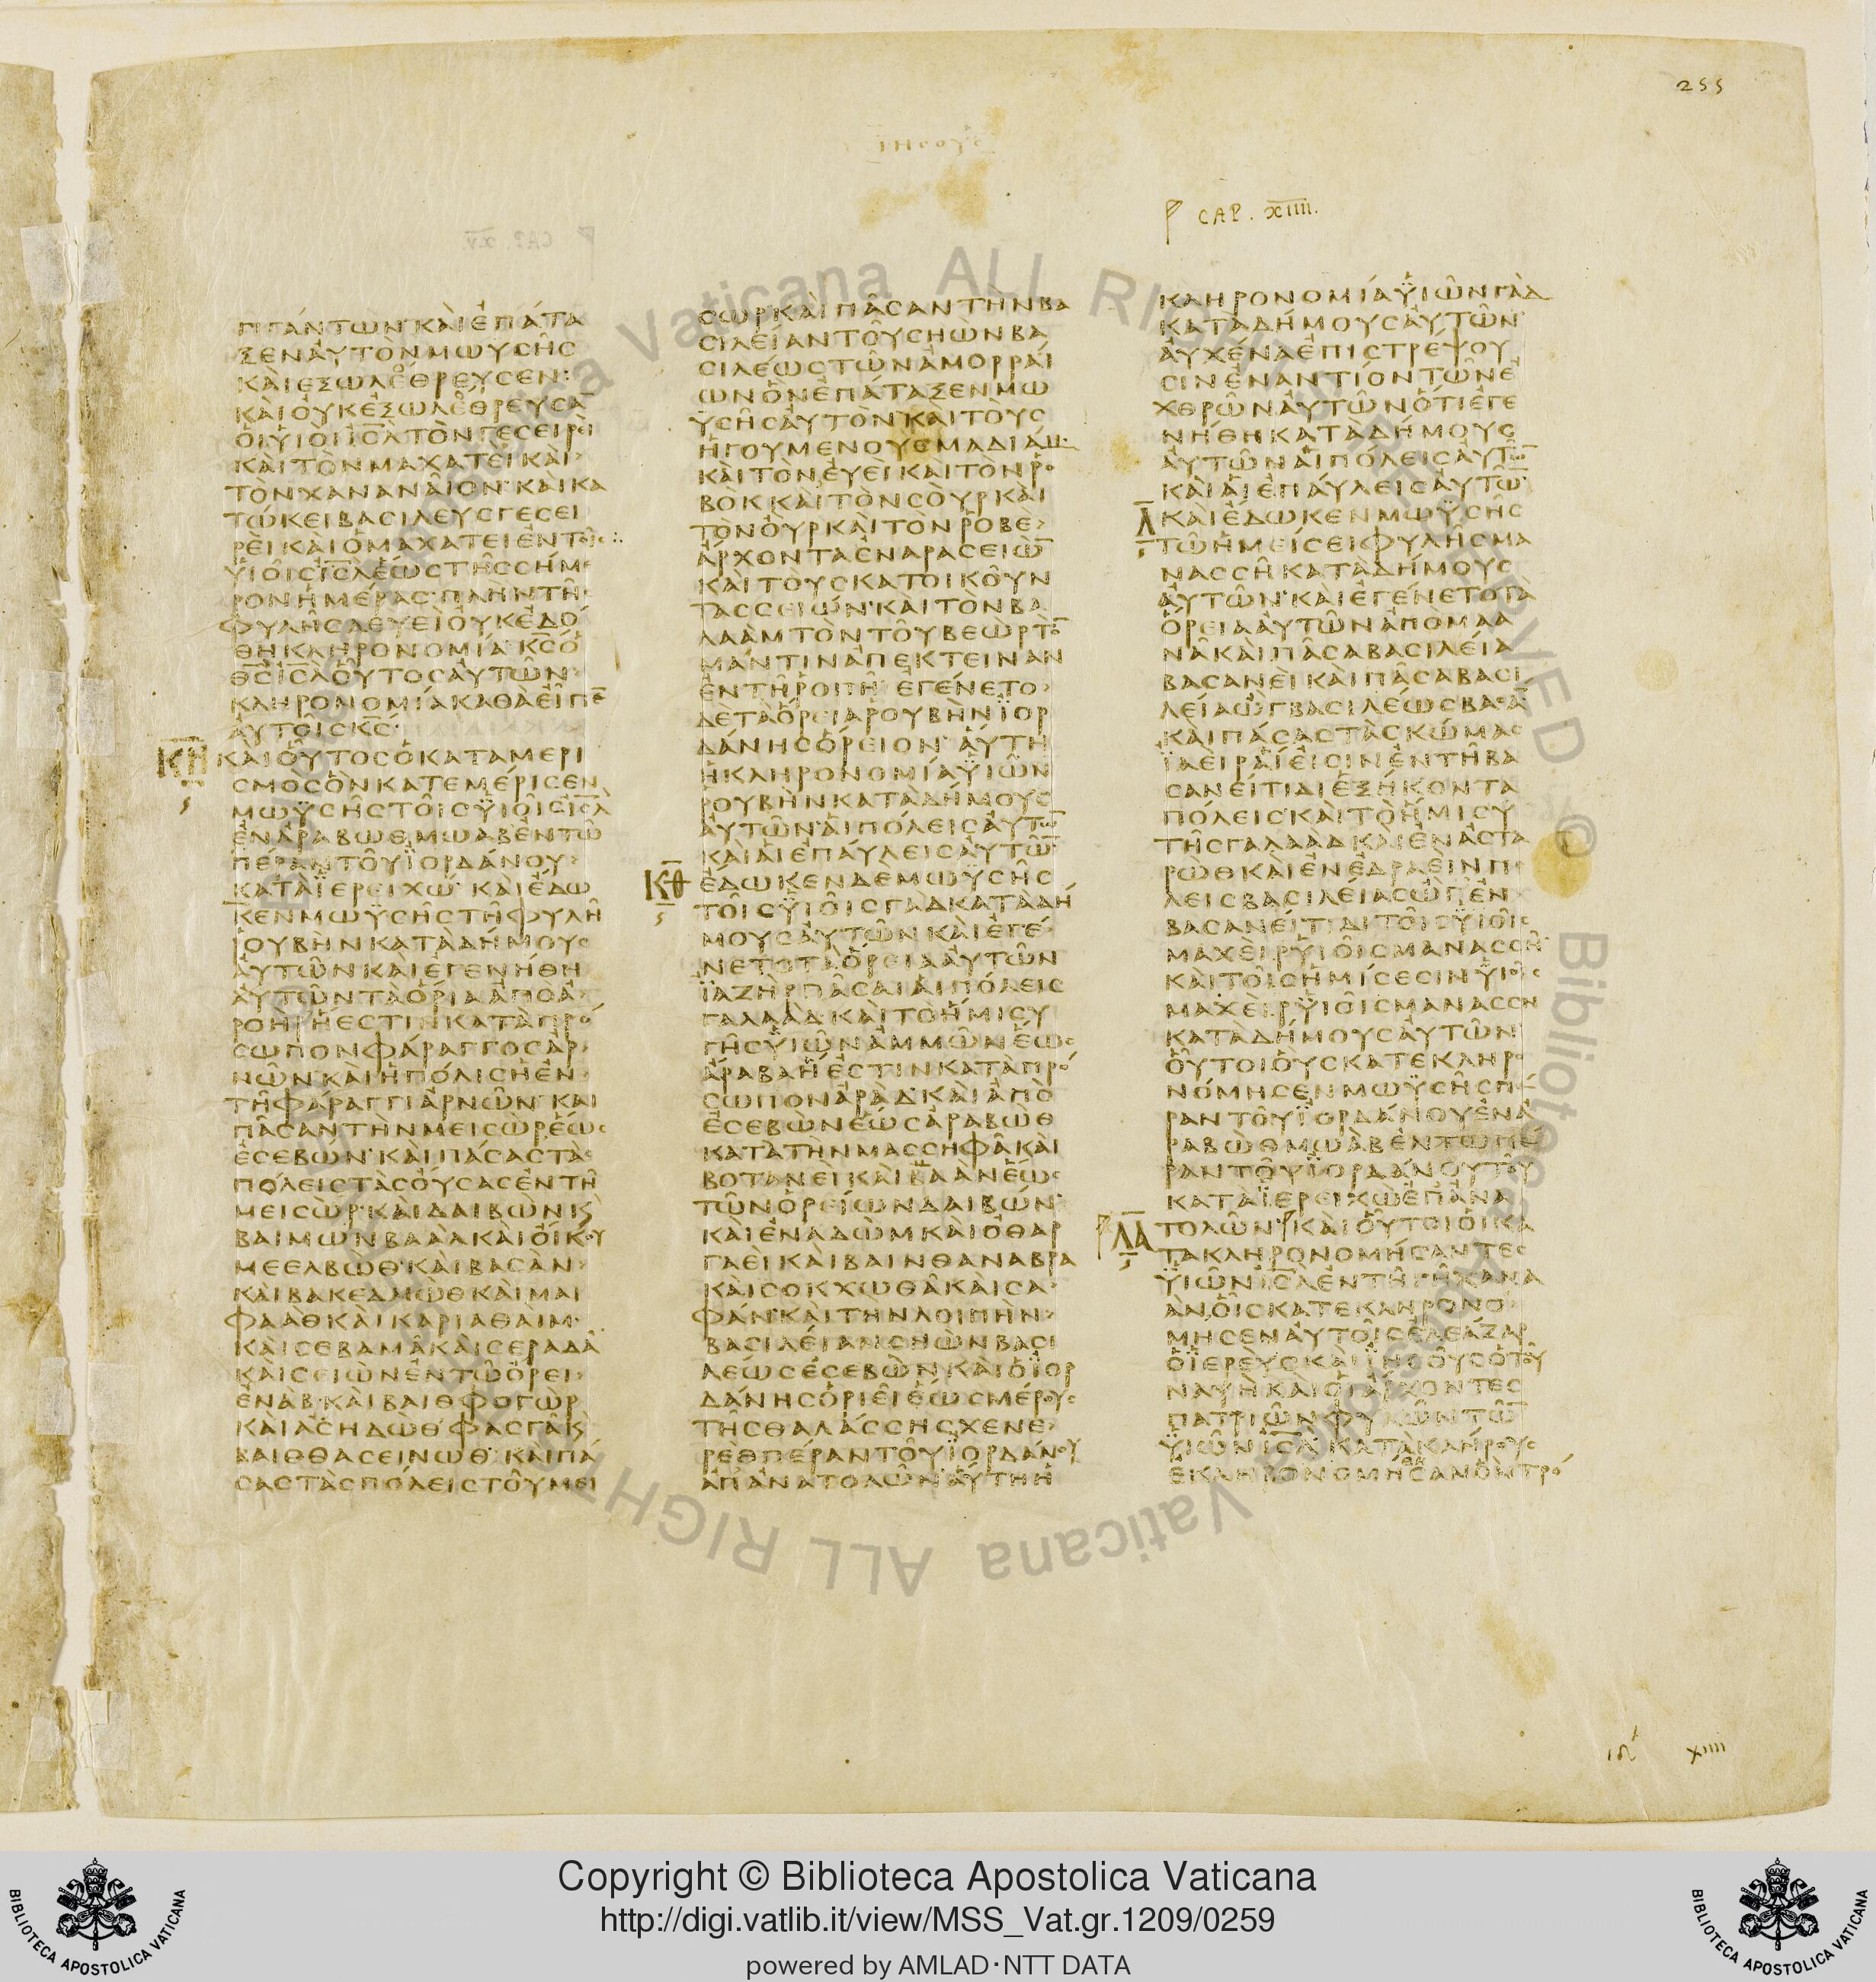 255
ΙΗΣΟΥΣ
CAP. XIIII.
ΓΙΓΑΝΤΩΝ ΚΑΙ ΕΠΑΤΑ
ΞΕΝ ΑΥΤΟΝ ΜΩΥΣΗΣ
ΚΑΙ ΕΞΩΛΕΘΡΕΥΣΕΝ
ΚΑΙ ΟΥΚ ΕΞΩΛΕΘΡΕΥΣᾹ
ΟΙ ΥΙΟΙ ΙΣΛ ΤΟΝ ΓΕΣΕΙΡΕΙ
ΚΑΙ ΤΟΝ ΜΑΧΑΤΕΙ ΚΑΙ
ΤΟΝ ΧΑΝΑΝΑΙΟΝ ΚΑΙ ΚΑ
ΤΩΚΕΙ ΒΑΣΙΛΕΥΣ ΓΕΣΕΙ
ΡΕΙ ΚΑΙ Ο ΜΑΧΑΤΕΙ ΕΝ ΤΟΙΣ
ΥΙΟΙΣ ΙΣΛ ΕΩΣ ΤΗΣ ΣΗΜΕ
ΡΟΝ ΗΜΕΡΑΣ ΠΛΗΝ ΤΗΣ
ΦΥΛΗΣ ΛΕΥΕΙ ΟΥΚ ΕΔΟ
ΘΗ ΚΛΗΡΟΝΟΜΙΑ ΚΣ Ο
ΘΣ ΙΣΛ ΟΥΤΟΣ ΑΥΤΩΝ
ΚΛΗΡΟΝΟΜΙΑ ΚΑΘΑ ΕΙΠΕ̄
ΑΥΤΟΙΣ ΚΣ
ΚΗ
ΚΑΙ ΟΥΤΟΣ Ο ΚΑΤΑΜΕΡΙ
ΣΜΟΣ ΟΝ ΚΑΤΕΜΕΡΙΣΕΝ
ΜΩΥΣΗΣ ΤΟΙΣ ΥΙΟΙΣ ΙΣΛ
ΕΝ ΑΡΑΒΩΘ ΜΩΑΒ ΕΝ ΤΩ
ΠΕΡΑΝ ΤΟΥ ΙΟΡΔΑΝΟΥ
ΚΑΤΑ ΙΕΡΕΙΧΩ ΚΑΙ ΕΔΩ
ΚΕΝ ΜΩΥΣΗΣ ΤΗ ΦΥΛΗ
ΡΟΥΒΗΝ ΚΑΤΑ ΔΗΜΟΥΣ
ΑΥΤΩΝ ΚΑΙ ΕΓΕΝΗΘΗ
ΑΥΤΩΝ ΤΑ ΟΡΙΑ ΑΠΟ Α
ΡΟΗΡ Η ΕΣΤΙΝ ΚΑΤΑ ΠΡΟ
ΣΩΠΟΝ ΦΑΡΑΓΓΟΣ ΑΡ
ΝΩΝ ΚΑΙ Η ΠΟΛΙΣ Η ΕΝ
ΤΗ ΦΑΡΑΓΓΙ ΑΡΝΩΝ ΚΑΙ
ΠΑΣΑΝ ΤΗΝ ΜΕΙΣΩΡ ΕΩΣ
ΕΣΕΒΩΝ ΚΑΙ ΠΑΣΑΣ ΤΑΣ
ΠΟΛΕΙΣ ΤΑΣ ΟΥΣΑΣ ΕΝ ΤΗ
ΜΕΙΣΩΡ ΚΑΙ ΔΑΙΒΩΝ Κ̀
ΒΑΙΜΩΝ ΒΑΑΛ ΚΑΙ ΟΙΚΟΥ
ΜΕΕΛΒΩΘ ΚΑΙ ΒΑΣΑΝ
ΚΑΙ ΒΑΚΕΔΜΩΘ ΚΑΙ ΜΑΙ
ΦΑΑΘ ΚΑΙ ΚΑΡΙΑΘΑΙΜ
ΚΑΙ ΣΕΒΑΜΑ ΚΑΙ ΣΕΡΑΔΑ
ΚΑΙ ΣΕΙΩΝ ΕΝ ΤΩ ΟΡΕΙ
ΕΝΑΒ ΚΑΙ ΒΑΙΘΦΟΓΩΡ
ΚΑΙ ΑΣΗΔΩΘ ΦΑΣΓΑ Κ̀
ΒΑΙΘΘΑΣΕΙΝΩΘ ΚΑΙ ΠΑ
ΣΑΣ ΤΑΣ ΠΟΛΕΙΣ ΤΟΥ ΜΕΙ
ΣΩΡ ΚΑΙ ΠΑΣΑΝ ΤΗΝ ΒΑ
ΣΙΛΕΙΑΝ ΤΟΥ ΣΗΩΝ ΒΑ
ΣΙΛΕΩΣ ΤΩΝ ΑΜΟΡΡΑΙ
ΩΝ ΟΝ ΕΠΑΤΑΞΕΝ ΜΩ
ΥΣΗΣ ΑΥΤΟΝ ΚΑΙ ΤΟΥΣ
ΗΓΟΥΜΕΝΟΥΣ ΜΑΔΙΑΜ
ΚΑΙ ΤΟΝ ΕΥΕΙ ΚΑΙ ΤΟΝ ΡΟ
ΒΟΚ ΚΑΙ ΤΟΝ ΣΟΥΡ ΚΑΙ
ΤΟΝ ΟΥΡ ΚΑΙ ΤΟΝ ΡΟΒΕ
ΑΡΧΟΝΤΑΣ ΕΝΑΡΑ ΣΕΙΩ̄
ΚΑΙ ΤΟΥΣ ΚΑΤΟΙΚΟΥΝ
ΤΑΣ ΣΕΙΩΝ ΚΑΙ ΤΟΝ ΒΑ
ΛΑΑΜ ΤΟΝ ΤΟΥ ΒΕΩΡ ΤΟ̄
ΜΑΝΤΙΝ ΑΠΕΚΤΕΙΝΑΝ
ΕΝ ΤΗ ΡΟΠΗ ΕΓΕΝΕΤΟ
ΔΕ ΤΑ ΟΡΕΙΑ ΡΟΥΒΗΝ ΙΟΡ
ΔΑΝΗΣ ΟΡΕΙΟΝ ΑΥΤΗ
Η ΚΛΗΡΟΝΟΜΙΑ ΥΙΩΝ
ΡΟΥΒΗΝ ΚΑΤΑ ΔΗΜΟΥΣ
ΑΥΤΩΝ ΑΙ ΠΟΛΕΙΣ ΑΥΤΩ̄
ΚΑΙ ΑΙ ΕΠΑΥΛΕΙΣ ΑΥΤΩ̄
ΚΘ
ΕΔΩΚΕΝ ΔΕ ΜΩΥΣΗΣ
ΤΟΙΣ ΥΙΟΙΣ ΓΑΔ ΚΑΤΑ ΔΗ
ΜΟΥΣ ΑΥΤΩΝ ΚΑΙ ΕΓΕ
ΝΕΤΟ ΤΑ ΟΡΕΙΑ ΑΥΤΩΝ
ΙΑΖΗΡ ΠΑΣΑΙ ΑΙ ΠΟΛΕΙΣ
ΓΑΛΑΑΔ ΚΑΙ ΤΟ ΗΜΙΣΥ
ΓΗΣ ΥΙΩΝ ΑΜΜΩΝ ΕΩΣ
ΑΡΑΒΑ Η ΕΣΤΙΝ ΚΑΤΑ ΠΡΟ
ΣΩΠΟΝ ΑΡΑΔ ΚΑΙ ΑΠΟ
ΕΣΕΒΩΝ ΕΩΣ ΑΡΑΒΩΘ
ΚΑΤΑ ΤΗΝ ΜΑΣΣΗΦΑ ΚΑΙ
ΒΟΤΑΝΕΙ ΚΑΙ ΒΑΑΝ ΕΩΣ
ΤΩΝ ΟΡΕΙΩΝ ΔΑΙΒΩΝ
ΚΑΙ ΕΝΑΔΩΜ ΚΑΙ ΟΘΑΡ
ΓΑΕΙ ΚΑΙ ΒΑΙΝΘΑΝΑΒΡΑ
ΚΑΙ ΣΟΚΧΩΘΑ ΚΑΙ ΣΑ
ΦΑΝ ΚΑΙ ΤΗΝ ΛΟΙΠΗΝ
ΒΑΣΙΛΕΙΑΝ ΣΗΩΝ ΒΑΣΙ
ΛΕΩΣ ΕΣΕΒΩΝ ΚΑΙ Ο ΙΟΡ
ΔΑΝΗΣ ΟΡΙΕΙ ΕΩΣ ΜΕΡΟΥΣ
ΤΗΣ ΘΑΛΑΣΣΗΣ ΧΕΝΕ
ΡΕΘ ΠΕΡΑΝ ΤΟΥ ΙΟΡΔΑΝΟΥ
ΑΠ ΑΝΑΤΟΛΩΝ ΑΥΤΗ Η
ΚΛΗΡΟΝΟΜΙΑ ΥΙΩΝ ΓΑΔ
ΚΑΤΑ ΔΗΜΟΥΣ ΑΥΤΩΝ
ΑΥΧΕΝΑ ΕΠΙΣΤΡΕΨΟΥ
ΣΙΝ ΕΝΑΝΤΙΟΝ ΤΩΝ Ε
ΧΘΡΩΝ ΑΥΤΩΝ ΟΤΙ ΕΓΕ
ΝΗΘΗ ΚΑΤΑ ΔΗΜΟΥΣ
ΑΥΤΩΝ ΑΙ ΠΟΛΕΙΣ ΑΥΤΩ̄
ΚΑΙ ΑΙ ΕΠΑΥΛΕΙΣ ΑΥΤΩ̄
Λ
ΚΑΙ ΕΔΩΚΕΝ ΜΩΥΣΗΣ
ΤΩ ΗΜΕΙΣΕΙ ΦΥΛΗΣ ΜΑ
ΝΑΣΣΗ ΚΑΤΑ ΔΗΜΟΥΣ
ΑΥΤΩΝ ΚΑΙ ΕΓΕΝΕΤΟ ΤΑ
ΟΡΕΙΑ ΑΥΤΩΝ ΑΠΟ ΜΑΑ
ΝΑ ΚΑΙ ΠΑΣΑ ΒΑΣΙΛΕΙΑ
ΒΑΣΑΝΕΙ ΚΑΙ ΠΑΣΑ ΒΑΣΙ
ΛΕΙΑ ΩΓ ΒΑΣΙΛΕΩΣ ΒΑΣᾹ
ΚΑΙ ΠΑΣΑΣ ΤΑΣ ΚΩΜΑΣ
ΙΑΕΙΡ ΑΙ ΕΙΣΙΝ ΕΝ ΤΗ ΒΑ
ΣΑΝΕΙΤΙΔΙ ΕΞΗΚΟΝΤΑ
ΠΟΛΕΙΣ ΚΑΙ ΤΟ ΗΜΙΣΥ
ΤΗΣ ΓΑΛΑΑΔ ΚΑΙ ΕΝ ΑΣΤΑ
ΡΩΘ ΚΑΙ ΕΝ ΕΔΡΑΕΙΝ ΠΟ
ΛΕΙΣ ΒΑΣΙΛΕΙΑΣ ΩΓ ΕΝ
ΒΑΣΑΝΕΙΤΙΔΙ ΤΟΙΣ ΥΙΟΙΣ
ΜΑΧΕΙΡ ΥΙΟΙΣ ΜΑΝΑΣΣΗ
ΚΑΙ ΤΟΙΣ ΗΜΙΣΕΣΙΝ ΥΙΟΙΣ
ΜΑΧΕΙΡ ΥΙΟΙΣ ΜΑΝΑΣΣΗ
ΚΑΤΑ ΔΗΜΟΥΣ ΑΥΤΩΝ
ΟΥΤΟΙ ΟΥΣ ΚΑΤΕΚΛΗΡΟ
ΝΟΜΗΣΕΝ ΜΩΥΣΗΣ ΠΕ
ΡΑΝ ΤΟΥ ΙΟΡΔΑΝΟΥ ΕΝ Α
ΡΑΒΩΘ ΜΩΑΒ ΕΝ ΤΩ ΠΕ
ΡΑΝ ΤΟΥ ΙΟΡΔΑΝΟΥ ΤΟΥ
ΚΑΤΑ ΙΕΡΕΙΧΩ ΕΠ ΑΝΑ
ΛΑ
ΤΟΛΩΝ ΚΑΙ ΟΥΤΟΙ ΟΙ ΚΑ
ΤΑΚΛΗΡΟΝΟΜΗΣΑΝΤΕΣ
ΥΙΩΝ ΙΣΛ ΕΝ ΤΗ ΓΗ ΧΑΝΑ
ΑΝ ΟΙΣ ΚΑΤΕΚΛΗΡΟΝΟ
ΜΗΣΕΝ ΑΥΤΟΙΣ ΕΛΕΑΖΑΡ
Ο ΙΕΡΕΥΣ ΚΑΙ ΙΗΣΟΥΣ Ο ΤΟΥ
ΝΑΥΗ ΚΑΙ ΟΙ ΑΡΧΟΝΤΕΣ
ΠΑΤΡΙΩΝ ΦΥΛΩΝ ΤΩ̄
ΥΙΩΝ ΙΣΛ ΚΑΤΑ ΚΛΗΡΟΥΣ
ΕΚΛΗΡΟΝΟΜΗΣΑΝ ΟΝ ΤΡΟ
XIIII
Copyright © Biblioteca Apostolica Vaticana
http://digi.vatlib.it/view/MSS_Vat.gr.1209/0259
powered by AMLAD·NTT DATA
BIBLIOTECA APOSTOLICA VATICANA
BIBLIOTECA APOSTOLICA VATICANA